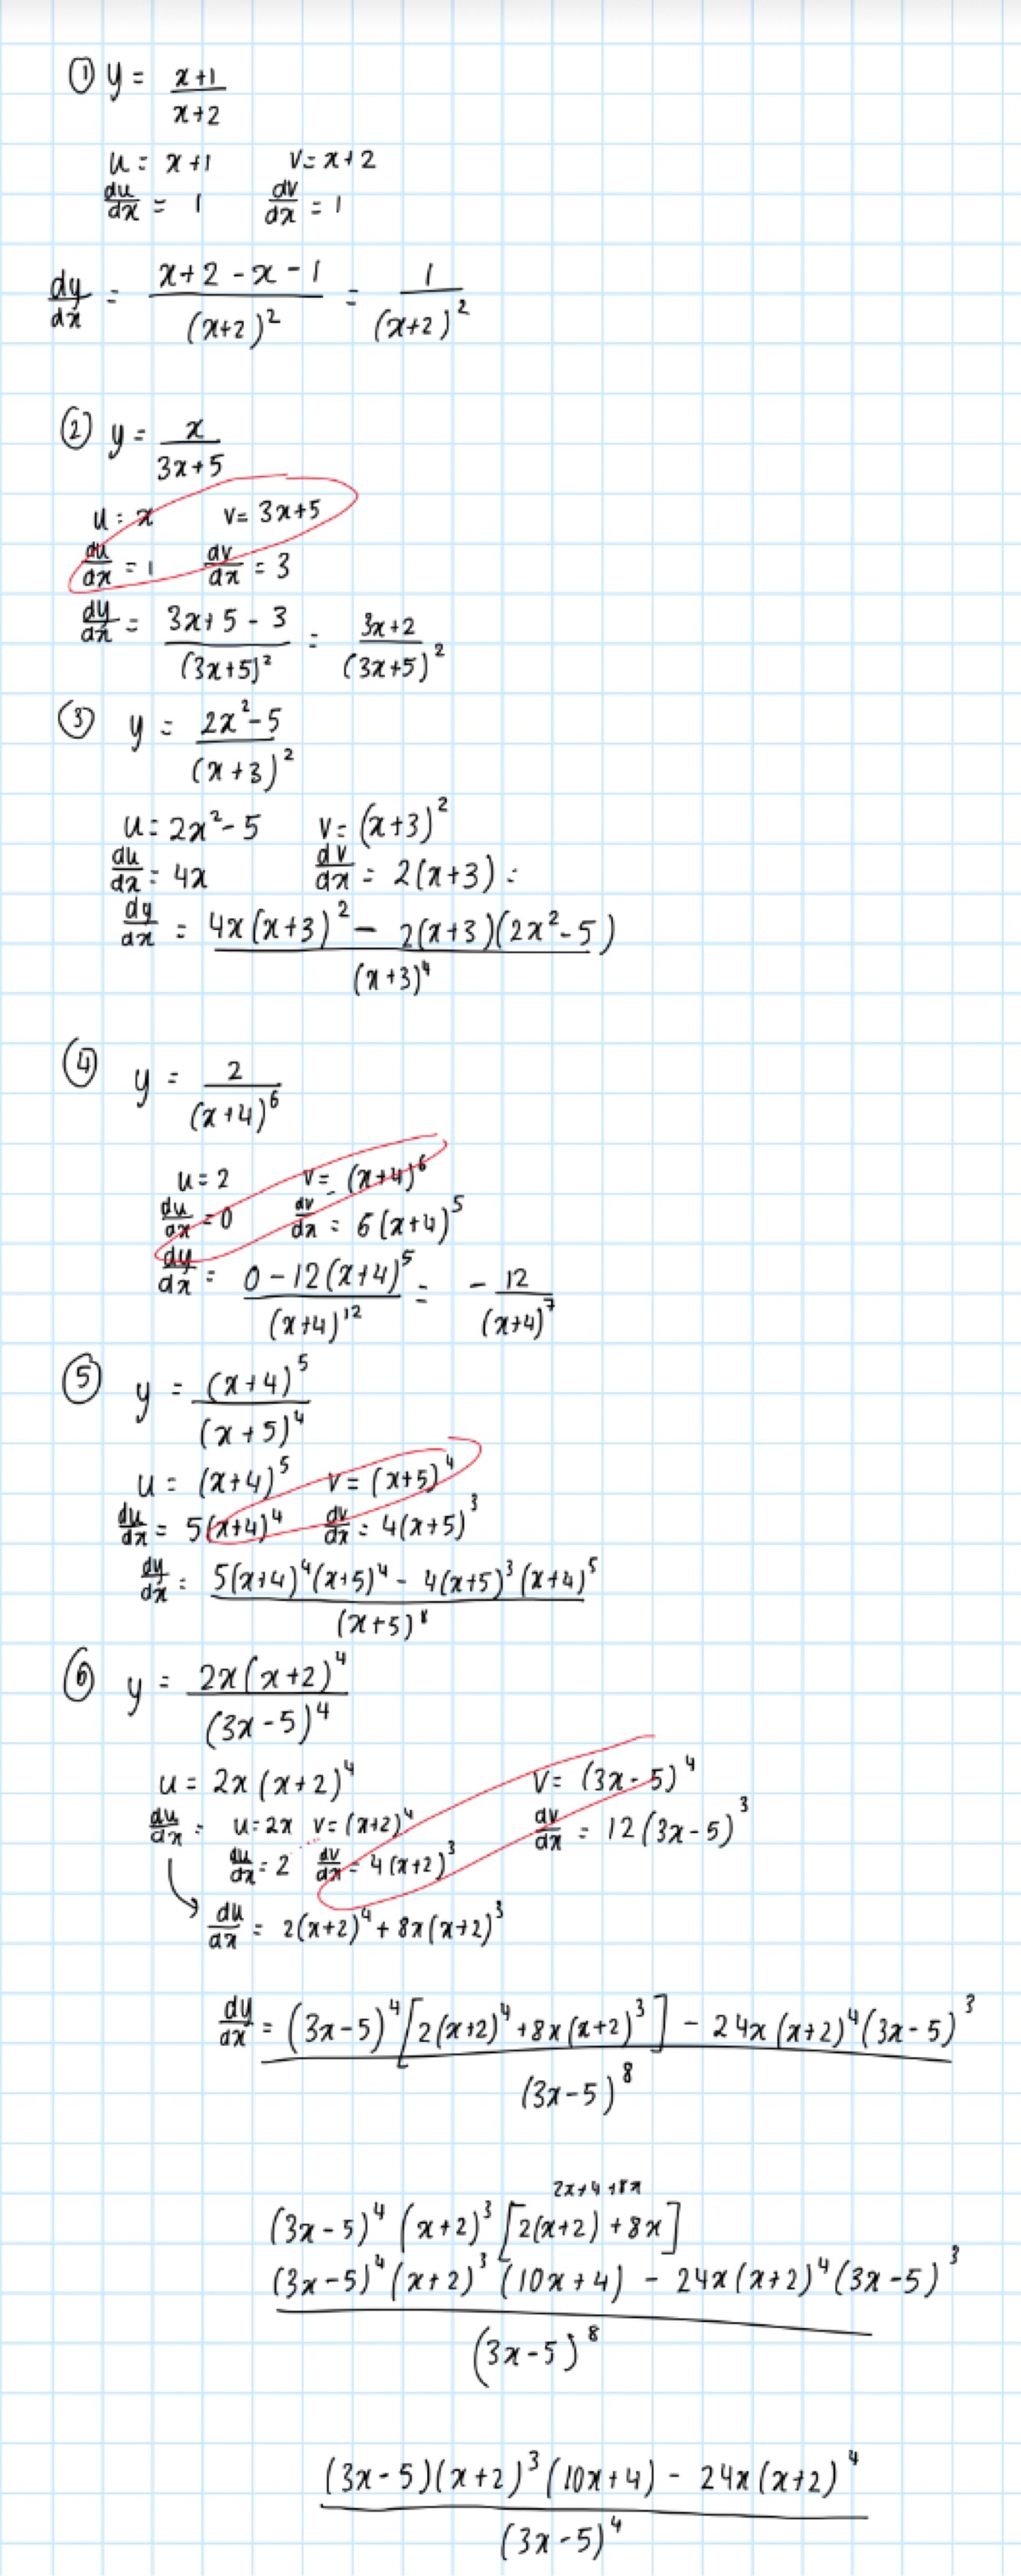 ① y = (x+1)/(x+2)
u = x+1 v = x+2
du/dx = 1 dv/dx = 1
dy/dx = (x+2-x-1)/(x+2)² = 1/(x+2)²
② y = x/(3x+5)
u = x v = 3x+5
du/dx = 1 dv/dx = 3
dy/dx = (3x+5-3)/(3x+5)² = (3x+2)/(3x+5)²
③ y = (2x²-5)/(x+3)²
u = 2x²-5 v = (x+3)²
du/dx = 4x dv/dx = 2(x+3) =
dy/dx = (4x(x+3)² - 2(x+3)(2x²-5))/(x+3)⁴
④ y = 2/(x+4)⁶
u = 2 v = (x+4)⁶
du/dx = 0 dv/dx = 6(x+4)⁵
dy/dx = (0-12(x+4)⁵)/(x+4)¹² = -12/(x+4)⁷
⑤ y = (x+4)⁵/(x+5)⁴
u = (x+4)⁵ v = (x+5)⁴
du/dx = 5(x+4)⁴ dv/dx = 4(x+5)³
dy/dx = (5(x+4)⁴(x+5)⁴ - 4(x+5)³(x+4)⁵)/(x+5)⁸
⑥ y = 2x(x+2)⁴/(3x-5)⁴
u = 2x(x+2)⁴ v = (3x-5)⁴
du/dx = u = 2x v = (x+2)⁴ dv/dx = 12(3x-5)³
du/dx = 2 dv/dx = 4(x+2)³
du/dx = 2(x+2)⁴ + 8x(x+2)³
dy/dx = ((3x-5)⁴[2(x+2)⁴+8x(x+2)³] - 24x(x+2)⁴(3x-5)³)/(3x-5)⁸
2x+4+8x
(3x-5)⁴(x+2)³[2(x+2)+8x]
((3x-5)⁴(x+2)³(10x+4) - 24x(x+2)⁴(3x-5)³)/(3x-5)⁸
((3x-5)(x+2)³(10x+4) - 24x(x+2)⁴)/(3x-5)⁴